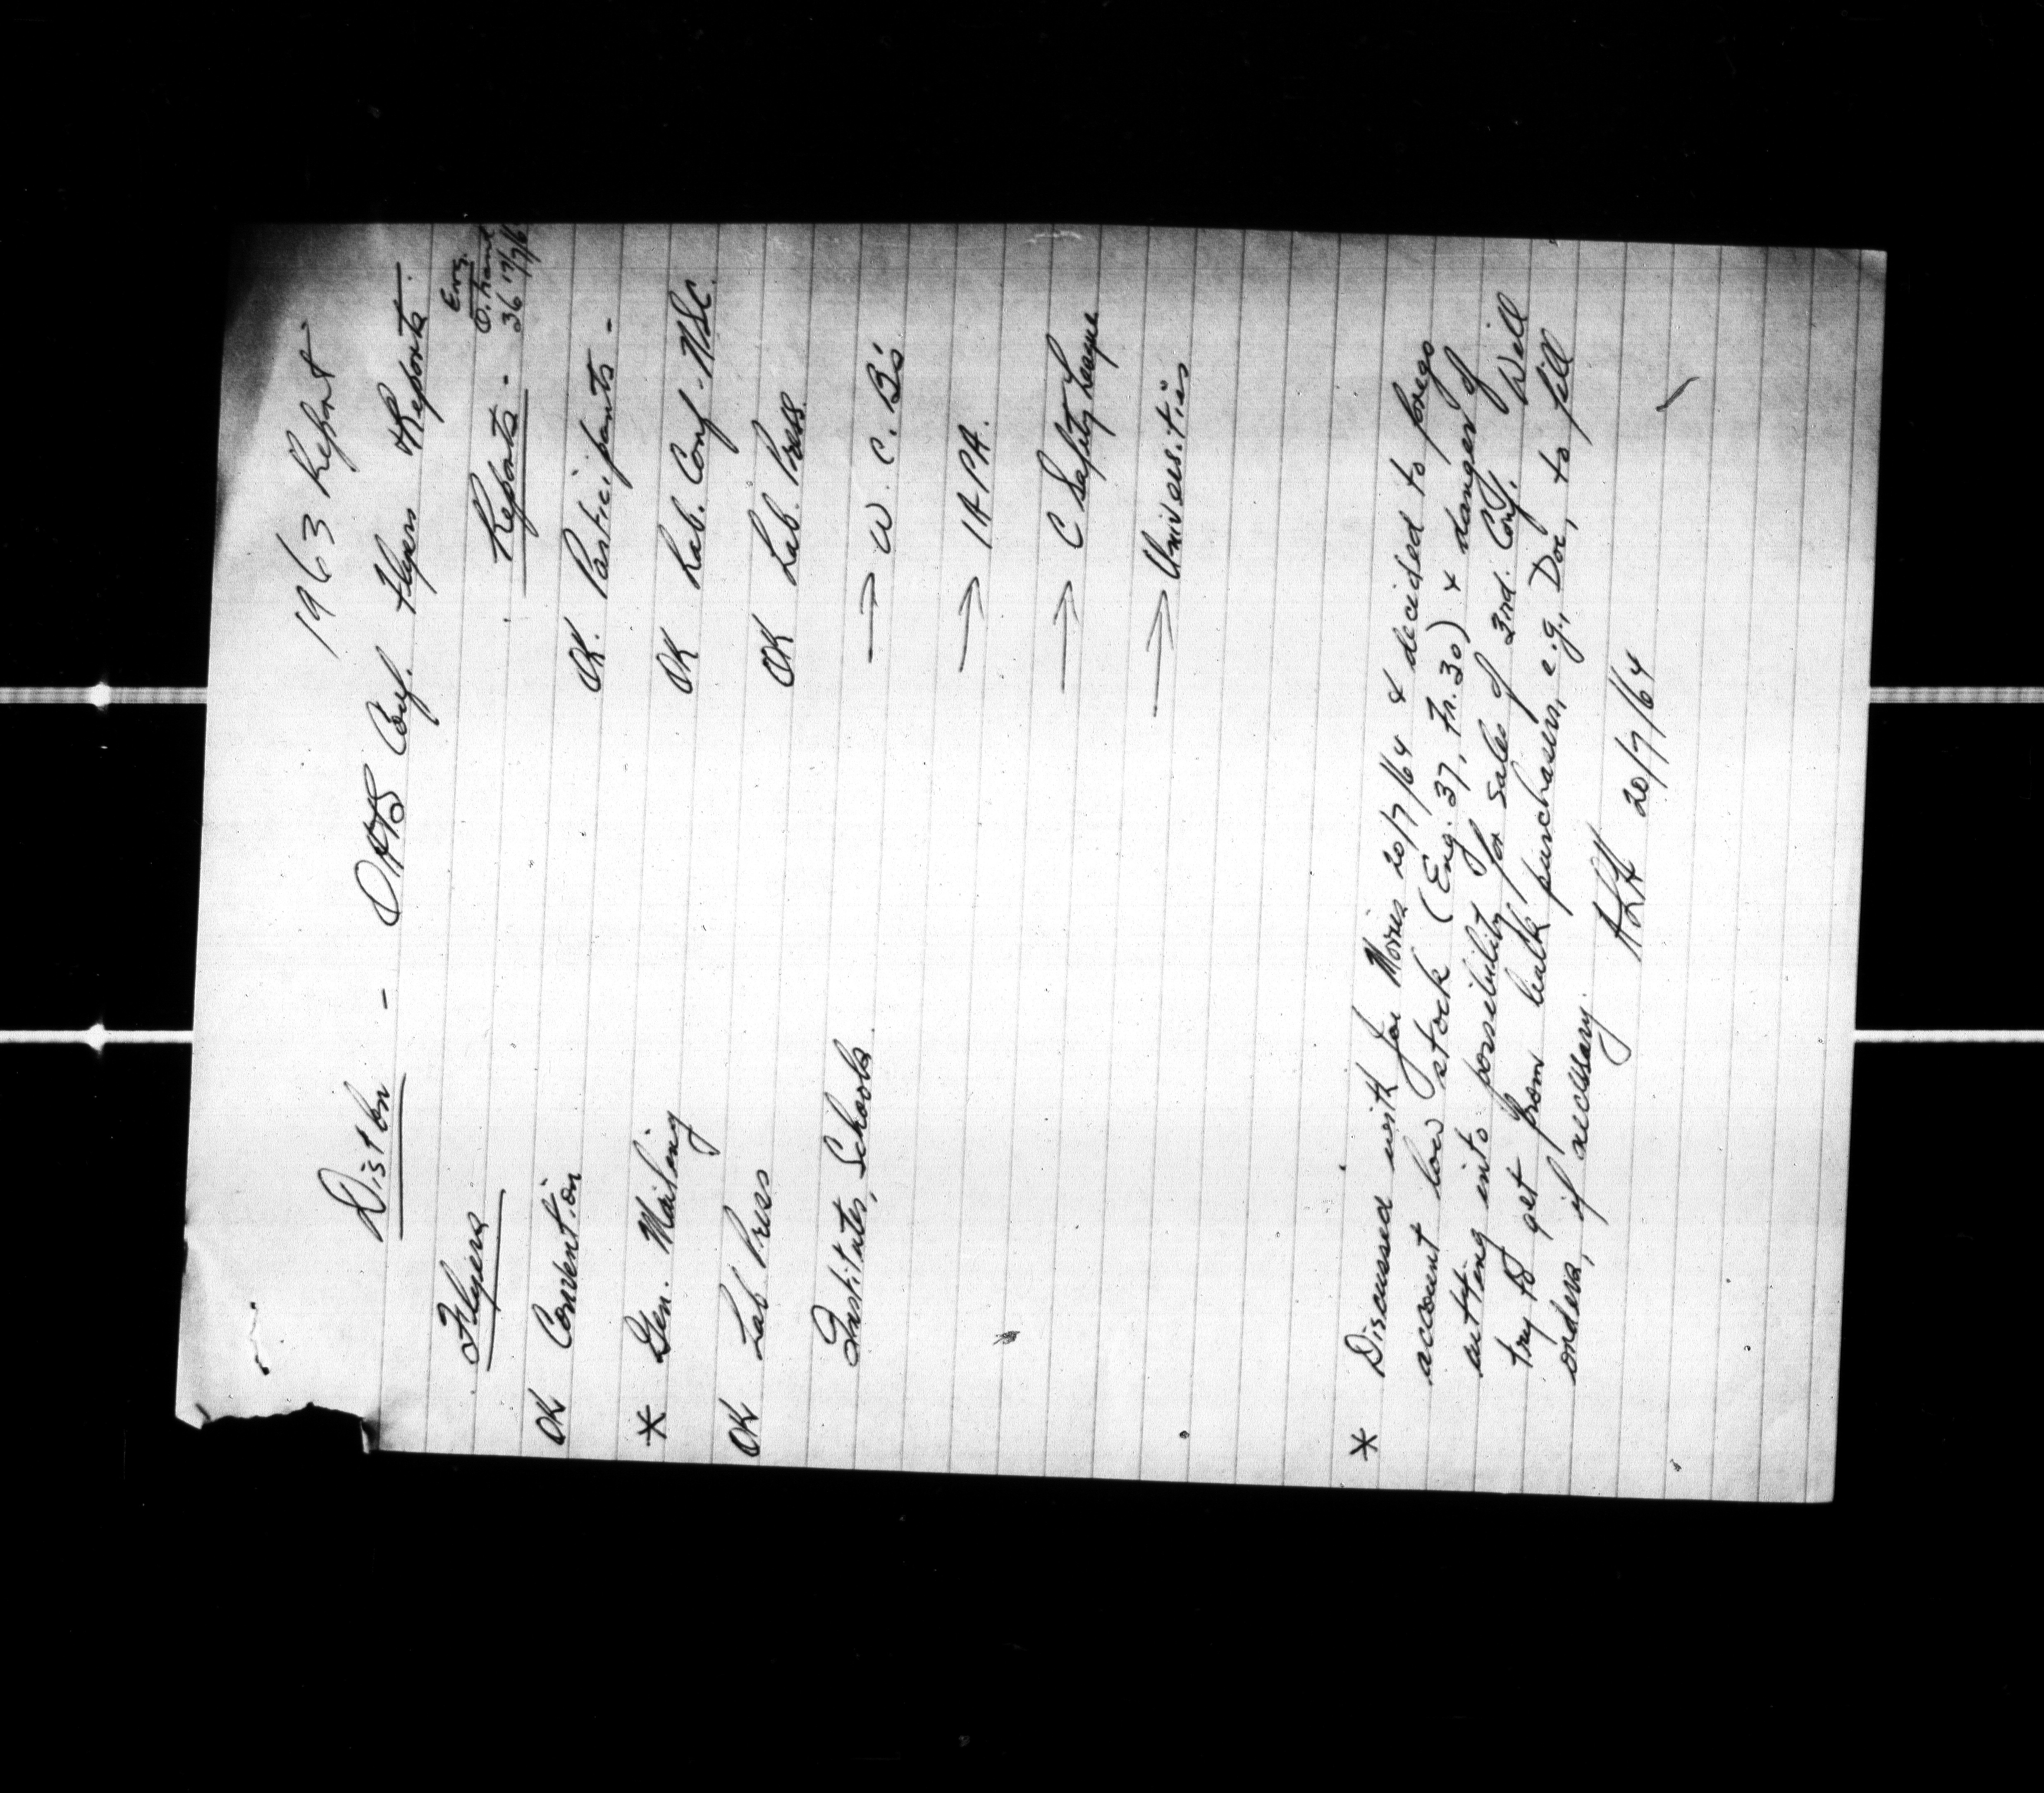 1963 Report
Distbn - OATS Conf. Flyers & Reports.
Eng.
O. hand
36 17/7/6
Flyers Reports -
OK Convention OK. Participants -
* Gen. Mailing OK Lab. Conf. - NSC.
OK Lab Press OK Lab. Press.
Institutes, Schools. → W. C. B's
→ IAPA.
→ C Safety League
→ Universities
* Discussed with Joe Morris 20/7/64 & decided to forego
account low stock (Eng. 37, Fr. 30) & danger of
cutting into possibility for sales of 3rd. Conf. Will
try to get from bulk purchasers, e.g., Doc, to fill
orders, if necessary.
20/7/64